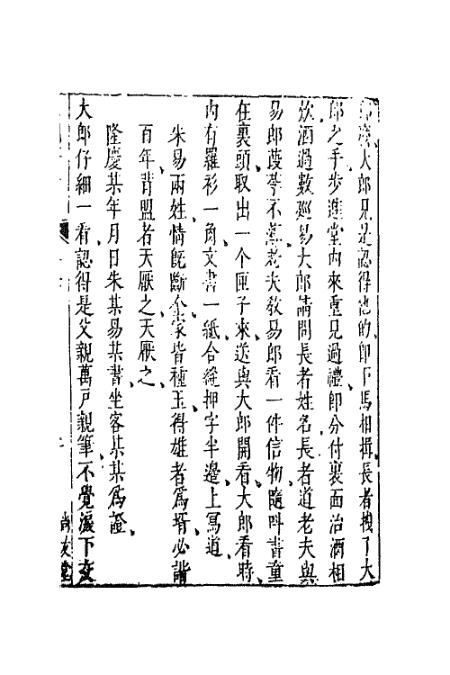 大郎見是認得他的即下馬相揖長者拽了大
郎之手步進堂內來重見過禮即分付裏面治酒相
欵酒過數廵易大郎請問長者姓名長者道老夫與
易郎葭莩不薄老夫教易郎看一件信物隨呌書童
在裏頭取出一个匣子來送與大郎開看大郎看時
內有羅衫一角文書一紙合縫押字半邊上寫道
朱易兩姓情旣斷金家皆種玉得雄者爲壻必諧
百年背盟者天厭之天厭之
隆慶某年月日朱某易某書坐客某某爲證
大郎仔細一看認得是父親萬戸親筆不覺淚下交
尚友堂